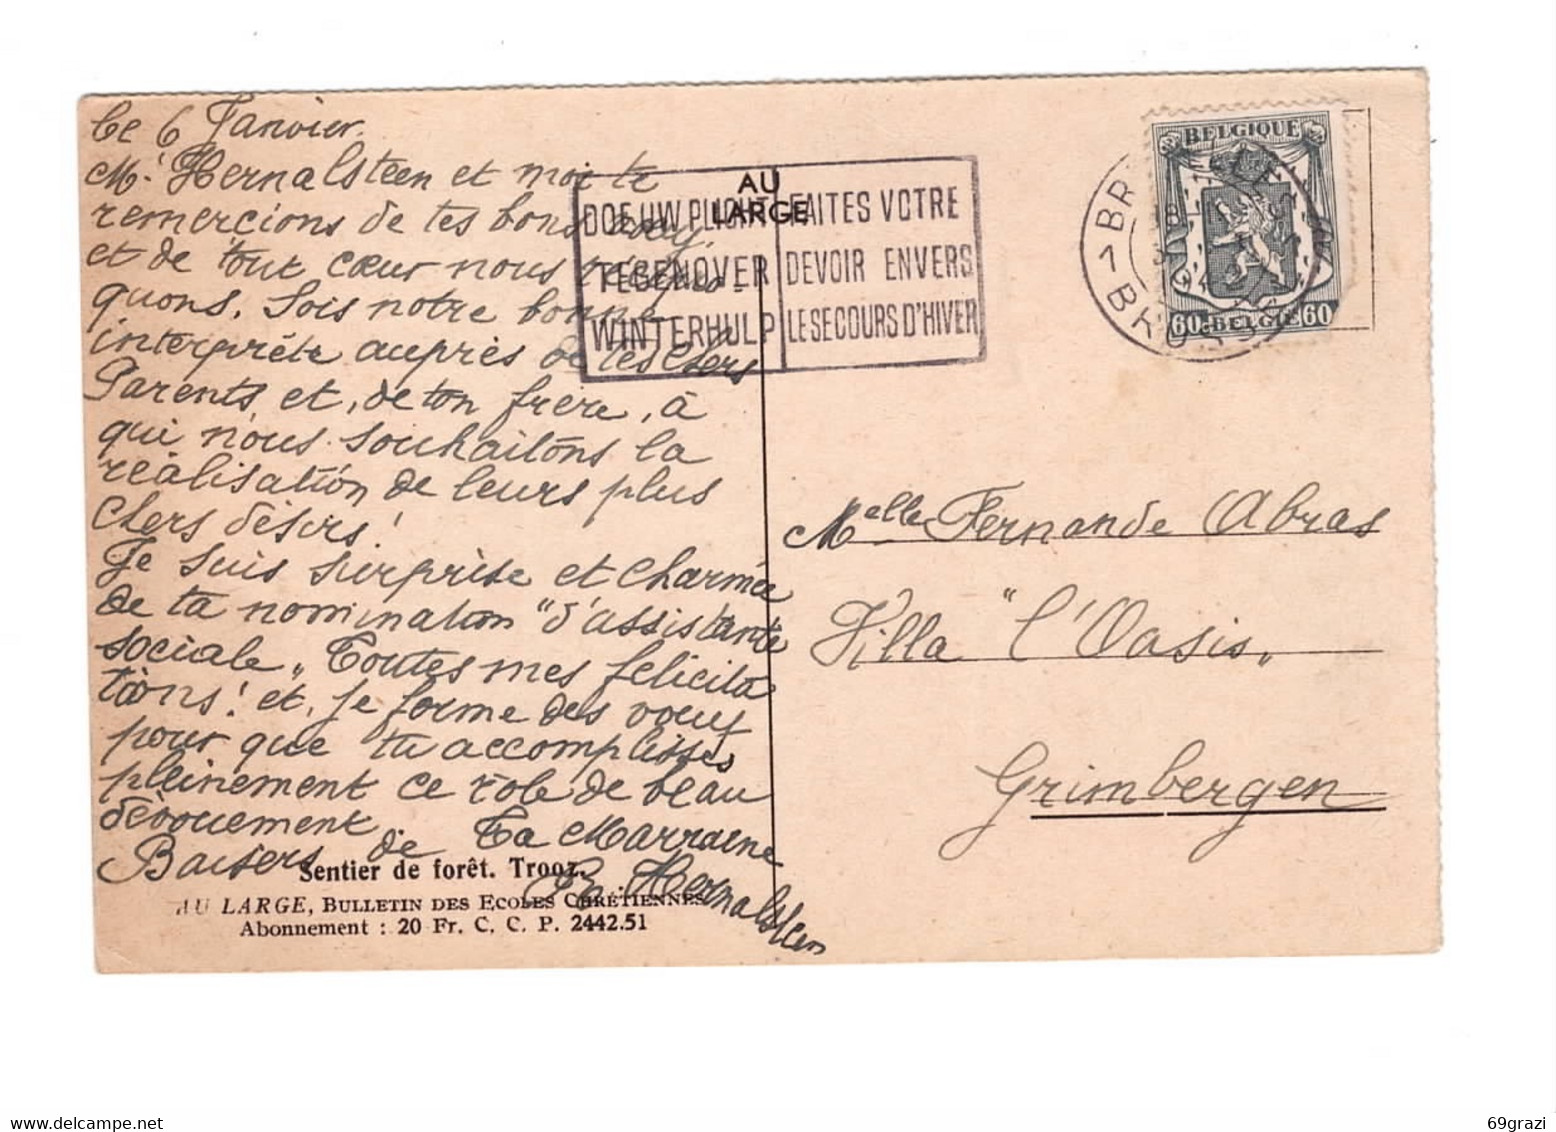 Le 6 Janvier.
Mr. Hernalsteen et moi te
remercions de tes bons vœux,
et de tout cœur nous
quons. Sois notre bonne
interprète auprès de tes chers
Parents, et, de ton frère, à
qui nous souhaitons la
réalisation de leurs plus
chers désirs!
Je suis surprise et charmée
de ta nomination "d'assistante
sociale„ Toutes mes félicita
tions! et, je forme des vœux
pour que tu accomplisses
pleinement ce rôle de beau
dévouement.
Baisers de Ta Marraine
Hernalsteen
Sentier de forêt. Trooz.
AU LARGE, BULLETIN DES ECOLES CHRÉTIENNES
Abonnement : 20 Fr. C. C. P. 2442.51
AU
LARGE
DOE UW PLICHT
TEGENOVER
WINTERHULP
FAITES VOTRE
DEVOIR ENVERS
LE SECOURS D'HIVER
BELGIQUE
60c BELGIË 60
Melle Fernande Abras
Villa "l'Oasis„
Grimbergen
69grazi